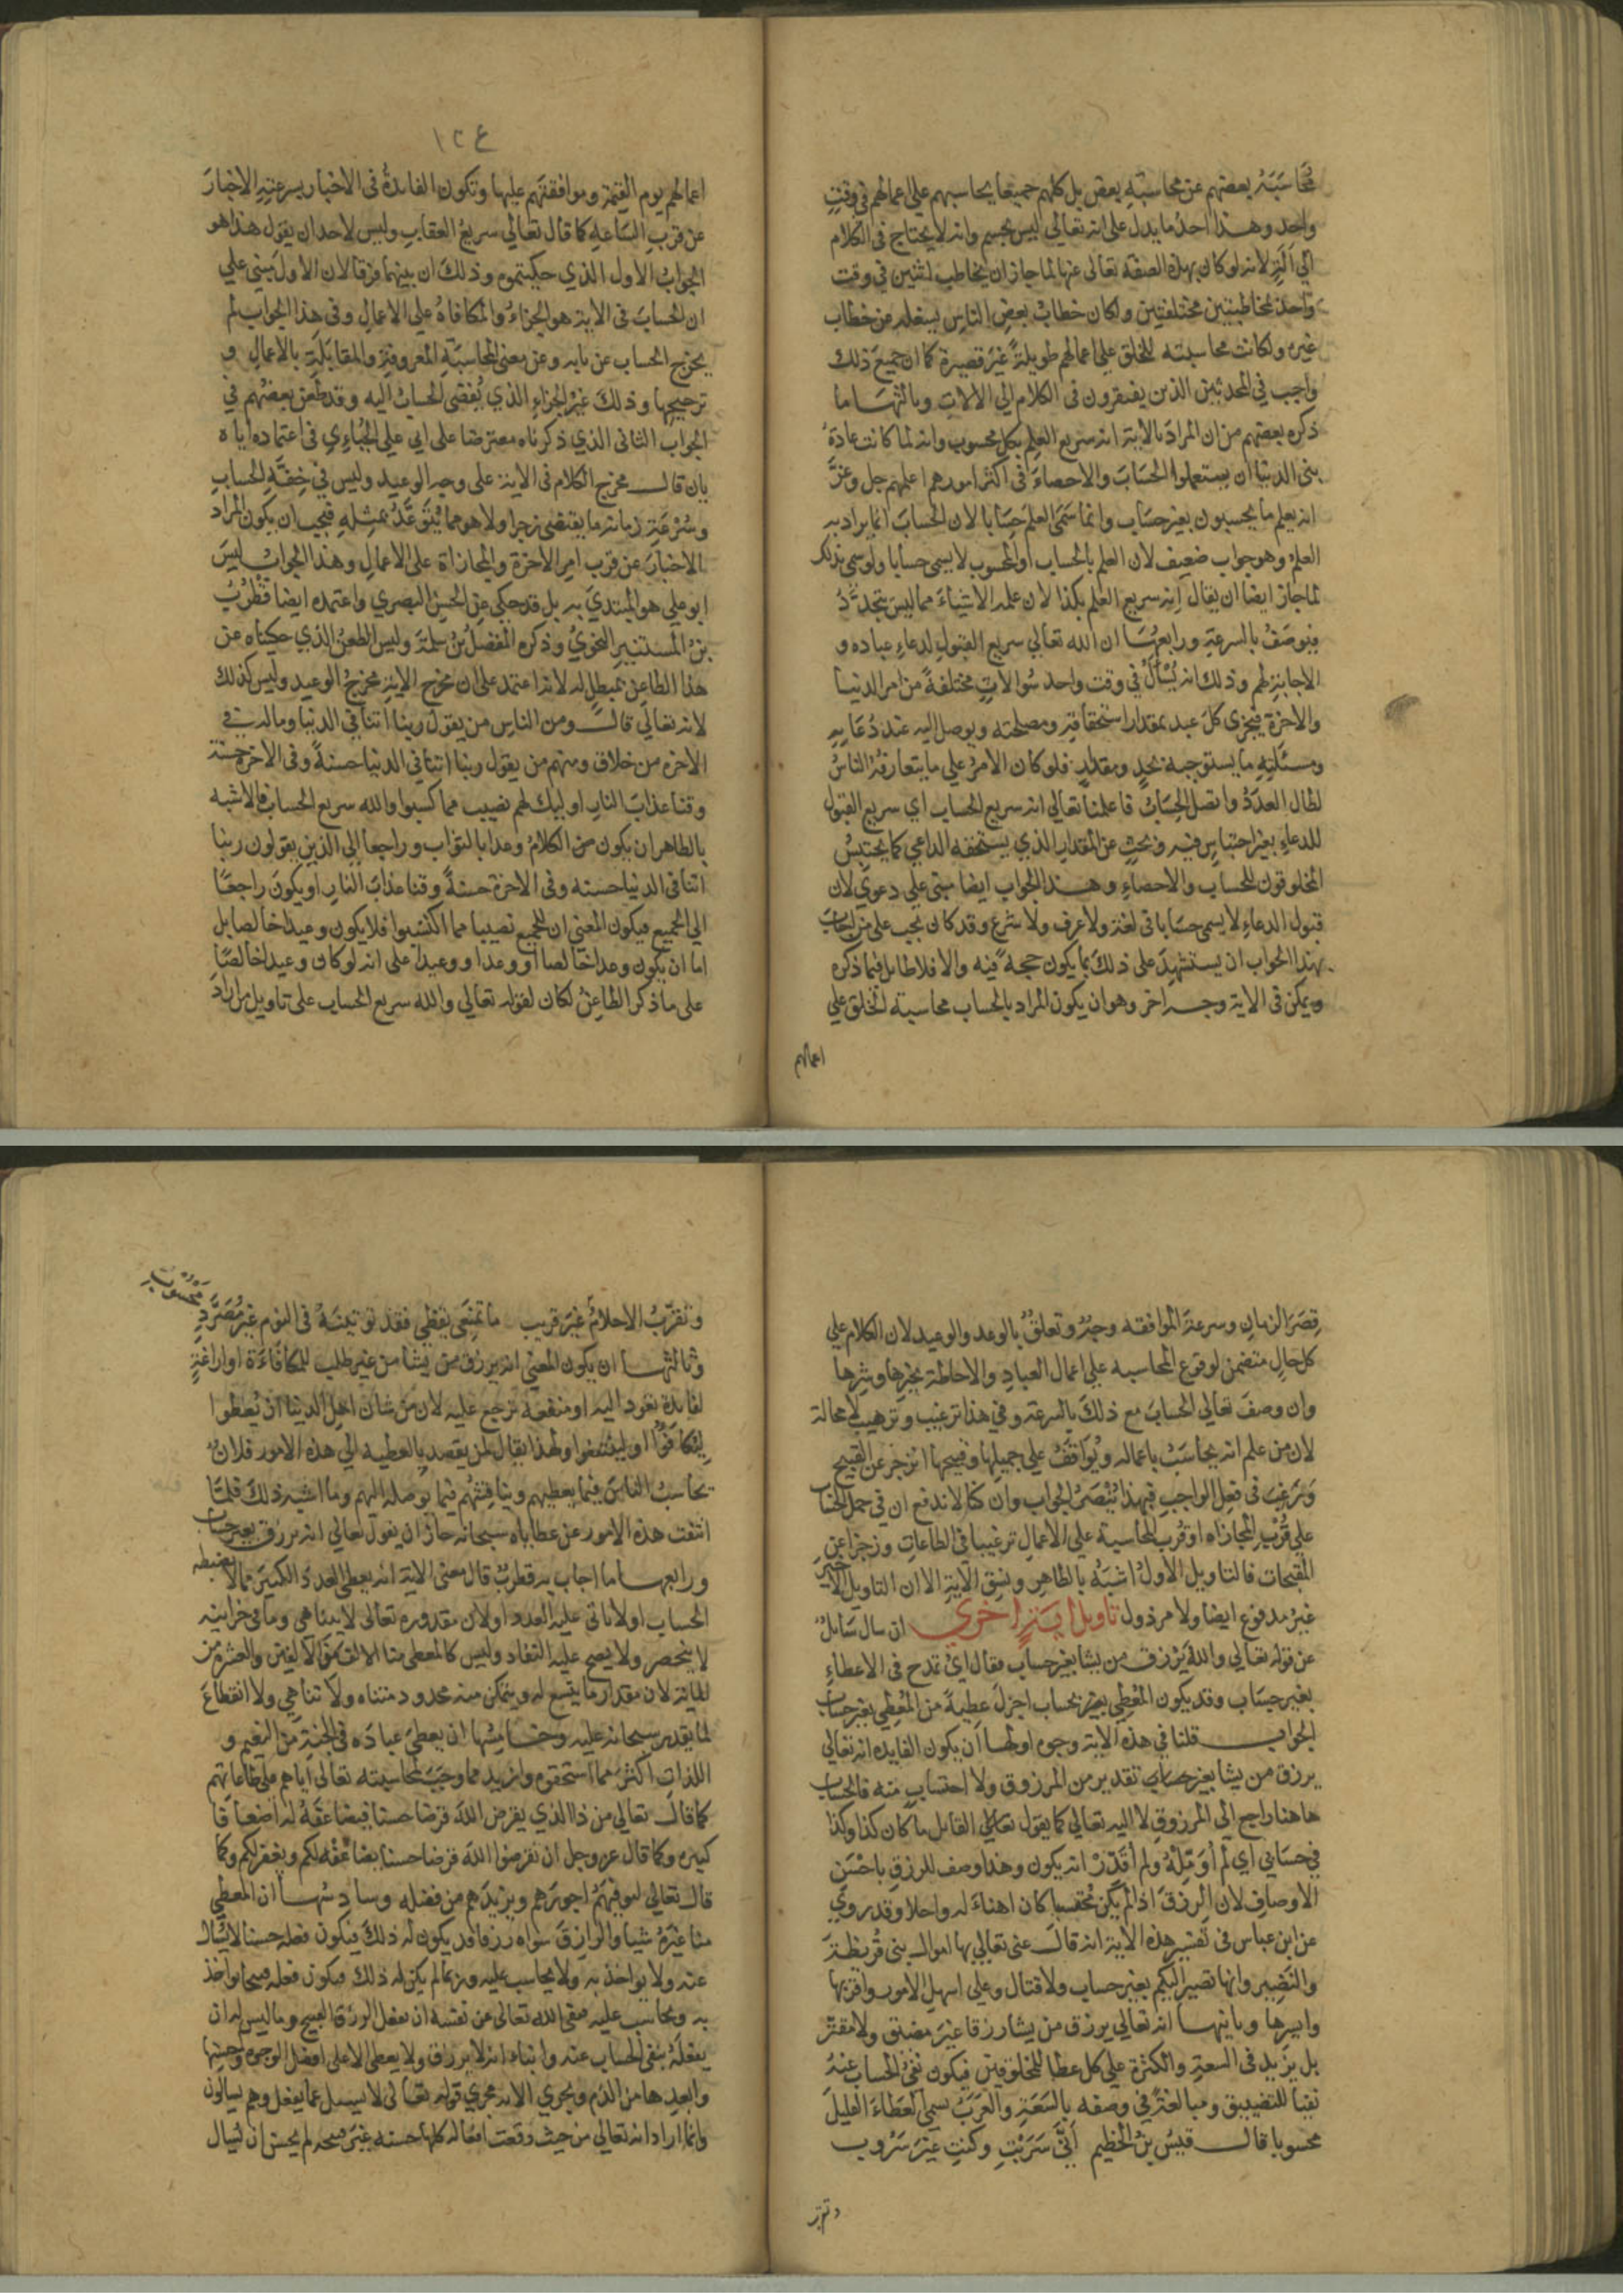 محاسبة بعضهم عن محاسبة بعض بل كلهم جميعا يحاسبهم على اعمالهم في وقت
واحد وهذا احد ما يدل على انه تعالى ليس بجسم وانه لا يحتاج في الكلام
الي الة لانه لو كان بهذه الصفة تعالى عنها لما جاز ان يخاطب اثنين في وقت
واحد بمخاطبتين مختلفتين ولكان خطاب بعض الناس يشغله عن خطاب
غيره ولكانت محاسبته للخلق على اعمالهم طويلة غير قصيرة كما ان جميع ذلك
واجب في المحدثين الذين يفتقرون في الكلام الي الالات وثالثها ما
ذكره بعضهم من ان المراد بالاية انه سريع العلم بكل محسوب وانه لما كانت عادة
بني الدنيا ان يستعملوا الحساب والاحصاء في اكثر امورهم اعلمهم جل وعز
انه يعلم ما يحسبون بغير حساب وانما سمى العلم حسابا لان الحساب انما يراد به
العلم وهو جواب ضعيف لان العلم بالحساب او المحسوب لا يسمى حسابا ولو سمى بذلك
لما جاز ايضا ان يقال انه سريع العلم بكذا لان علمه بالاشياء مما ليس يتجدد
فيوصف بالسرعة ورابعها ان الله تعالى سريع القبول لدعاء عباده و
الاجابة لهم وذلك انه يسأل في وقت واحد سوالات مختلفة من امر الدنيا
والاخرة فيجزى كل عبد بمقدار استحقاقه ومصلحته ويوصل اليه عند دعائه
ومسئلته ما يستوجبه بحد ومقدار فلو كان الامر على ما يتعارفه الناس
لطال العدد واتصل الحساب فاعلمنا تعالى انه سريع الحساب اي سريع القبول
للدعاء بغير احتباس فيه وبحث عن المقدار الذي يستحقه الداعي كما يحتبس
المخلوقون للحساب والاحصاء وهذا الجواب ايضا مبنى على دعوي لان
قبول الدعاء لا يسمى حسابا في لغة ولا عرف ولا شرع وقد كان يجب على من اجاب
بهذا الجواب ان يستشهد على ذلك بما يكون حجة فيه والا فلا طائل فيما ذكره
ويمكن في الاية وجه اخر وهو ان يكون المراد بالحساب محاسبته الخلق على
اعمالهم
١٢٤
اعمالهم يوم القيمة وموافقتهم عليها وتكون الفائدة في الاخبار بسرعته الاخبار
عن قرب الساعة كما قال تعالى سريع العقاب وليس لاحد ان يقول هذا هو
الجواب الاول الذي حكيتموه وذلك ان بينهما فرقا لان الاول مبني على
ان الحساب في الاية هو الجزاء والمكافاة على الاعمال وفي هذا الجواب لم
يخرج الحساب عن بابه وعن معنى المحاسبة المعروفة والمقابلة بالاعمال و
ترجيحها وذلك غير الجزاء الذي يفضى الحساب اليه وقد طعن بعضهم في
الجواب الثاني الذي ذكرناه معترضا على ابي علي الجبائي في اعتماده اياه
بان قال مخرج الكلام في الاية على وجه الوعيد وليس في خفة الحساب
وسرعة زمانه ما يقتضى زجرا ولا هو مما يتوعد بمثله فيجب ان يكون المراد
الاخبار عن قرب امر الاخرة والمجازاة على الاعمال وهذا الجواب ليس
ابو علي هو المبتدي به بل قد حكي عن الحسن البصري واعتمده ايضا قطرب
بن المستنير النحوي وذكره المفضل بن سلمة وليس الطعن الذي حكيناه عن
هذا الطاعن بمبطل له لانه اعتمد على ان مخرج الاية مخرج الوعيد وليس كذلك
لانه تعالى قال ومن الناس من يقول ربنا اتنا في الدنيا وماله في
الاخرة من خلاق ومنهم من يقول ربنا اتنا في الدنيا حسنة وفي الاخرة حسنة
وقنا عذاب النار اوليك لهم نصيب مما كسبوا والله سريع الحساب فالاشبه
بالظاهر ان يكون من الكلام وعدا بالثواب وراجعا الى الذين يقولون ربنا
اتنا في الدنيا حسنة وفي الاخرة حسنة وقنا عذاب النار او يكون راجعا
الي الجميع فيكون المعنى ان للجميع نصيبا مما اكتسبوا فلا يكون وعيدا خالصا بل
اما ان يكون وعدا خالصا او وعدا ووعيدا على انه لو كان وعيدا خالصا
على ما ذكر الطاعن لكان لقوله تعالى والله سريع الحساب على تاويل من اراد
قصر الزمان وسرعة الموافقة وجه وتعلق بالوعد والوعيد لان الكلام علي
كل حال متضمن لوقوع المحاسبة على اعمال العباد والاحاطة بخيرها وشرها
وان وصف تعالى الحساب مع ذلك بالسرعة وفي هذا ترغيب وترهيب لا محالة
لان من علم انه يحاسب باعماله ويواقف على جميلها وقبيحها انزجر عن القبيح
ورغب في فعل الواجب فبهذا ينصر الجواب وان كنا لا ندفع ان في حمل الحساب
على قرب المجازاه او قرب المحاسبة على الاعمال ترغيبا في الطاعات وزجرا عن
المقبحات فالتاويل الاول اشبه بالظاهر ونسق الاية الا ان التاويل الاخير
غير مدفوع ايضا ولا مرذول تاويل اية اخري ان سال سائل
عن قوله تعالى والله يرزق من يشا بغير حساب فقال اي تمدح في الاعطاء
بغير حساب وقد يكون المعطي بحساب اجزل عطية من المعطي بغير حساب
الجواب قلنا في هذه الاية وجوه اولها ان يكون الفايده انه تعالى
يرزق من يشا بغير حساب تقدير من المرزوق ولا احتساب منه فالحساب
هاهنا راجع الي المرزوق لا اليه تعالى كما يقول القائل ما كان كذا وكذا
في حسابي اي لم اؤمله ولم اقدر انه يكون وهذا وصف للرزق باحسن
الاوصاف لان الرزق اذا لم يكن محتسبا كان اهنا له واحلا وقد روي
عن ابن عباس في تفسير هذه الاية انه قال عنى تعالى بها اموال بني قريظة
والنضير وانها تصير اليكم بغير حساب ولا قتال وعلى اسهل الامور واقربها
وايسرها وثانيها انه تعالى يرزق من يشا رزقا غير مضيق ولا مقتر
بل يزيد في السعة والكثرة على كل عطا للمخلوقين فيكون نفي الحساب عنه
نفيا للتضييق ومبالغة في وصفه بالسعة والعرب تسمى العطاء القليل
محسوبا قال قيس بن الخطيم أنى سربت وكنت غير سروب
وتقرب
وتقرب الاحلام غير قريب ما تمنعي يقظي فقد توتينه في النوم غير مصرد
محسوب
وثالثها ان يكون المعني انه يرزق من يشا من غير طلب للمكافاءة او اراغة
لفايدة تعود اليه او منفعة ترجع عليه لان من شان اهل الدنيا ان يعطوا
ليكافؤا او لينتفعوا ولهذا يقال لمن يقصد بالعطية الي هذه الامور فلان
يحاسب الناس فيما يعطيهم ويناقشهم فيما يوصله اليهم وما اشبه ذلك فلما
انتفت هذه الامور عن عطاياه سبحانه جاز ان يقول تعالى انه يرزق بغير حساب
ورابعها ما اجاب به قطرب قال معنى الاية انه يعطى العدد الكثير مما لا يضبطه
الحساب او لا ياتى عليه العدد لان مقدوره تعالى لا يتناهي وما في خزاينه
لا ينحصر ولا يصح عليه النفاد وليس كالمعطي منا الالف من الالفين والعشرة من
الماية لان مقدار ما يتسع له ويتمكن منه محدود متناه ولا تناهي ولا انقطاع
لما يقدر سبحانه عليه وخامسها ان يعطى عباده في الجنة من النعيم و
اللذات اكثر مما استحقوه وازيد مما وجب بمحاسبته تعالى اياهم على طاعاتهم
كما قال تعالي من ذا الذي يقرض الله قرضا حسنا فيضاعفه له اضعافا
كثيرة وكما قال عز وجل ان تقرضوا الله قرضا حسنا يضاعفه لكم ويغفر لكم وكما
قال تعالى ليوفيهم اجورهم ويزيدهم من فضله وسادسها ان المعطي
منا غيره شيا والرازق سواه رزقا قد يكون له ذلك فيكون فعله حسنا لا يسال
عنه ولا يواخذ به ولا يحاسب عليه وربما لم يكن له ذلك فيكون فعله قبيحا يواخذ
به ويحاسب عليه فنفى الله تعالى عن نفسه ان يفعل الرزق القبيح وما ليس له ان
يفعله بنفي الحساب عنه وانباء انه لا يرزق ولا يعطى الا على افضل الوجوه واحسنها
وابعدها من الذم ويجري الاية مجري قوله تعالى لا يسئل عما يفعل وهم يسالون
وانما اراد انه تعالى من حيث وقعت افعاله كلها حسنة غير قبيحة لم يحسن ان يسال